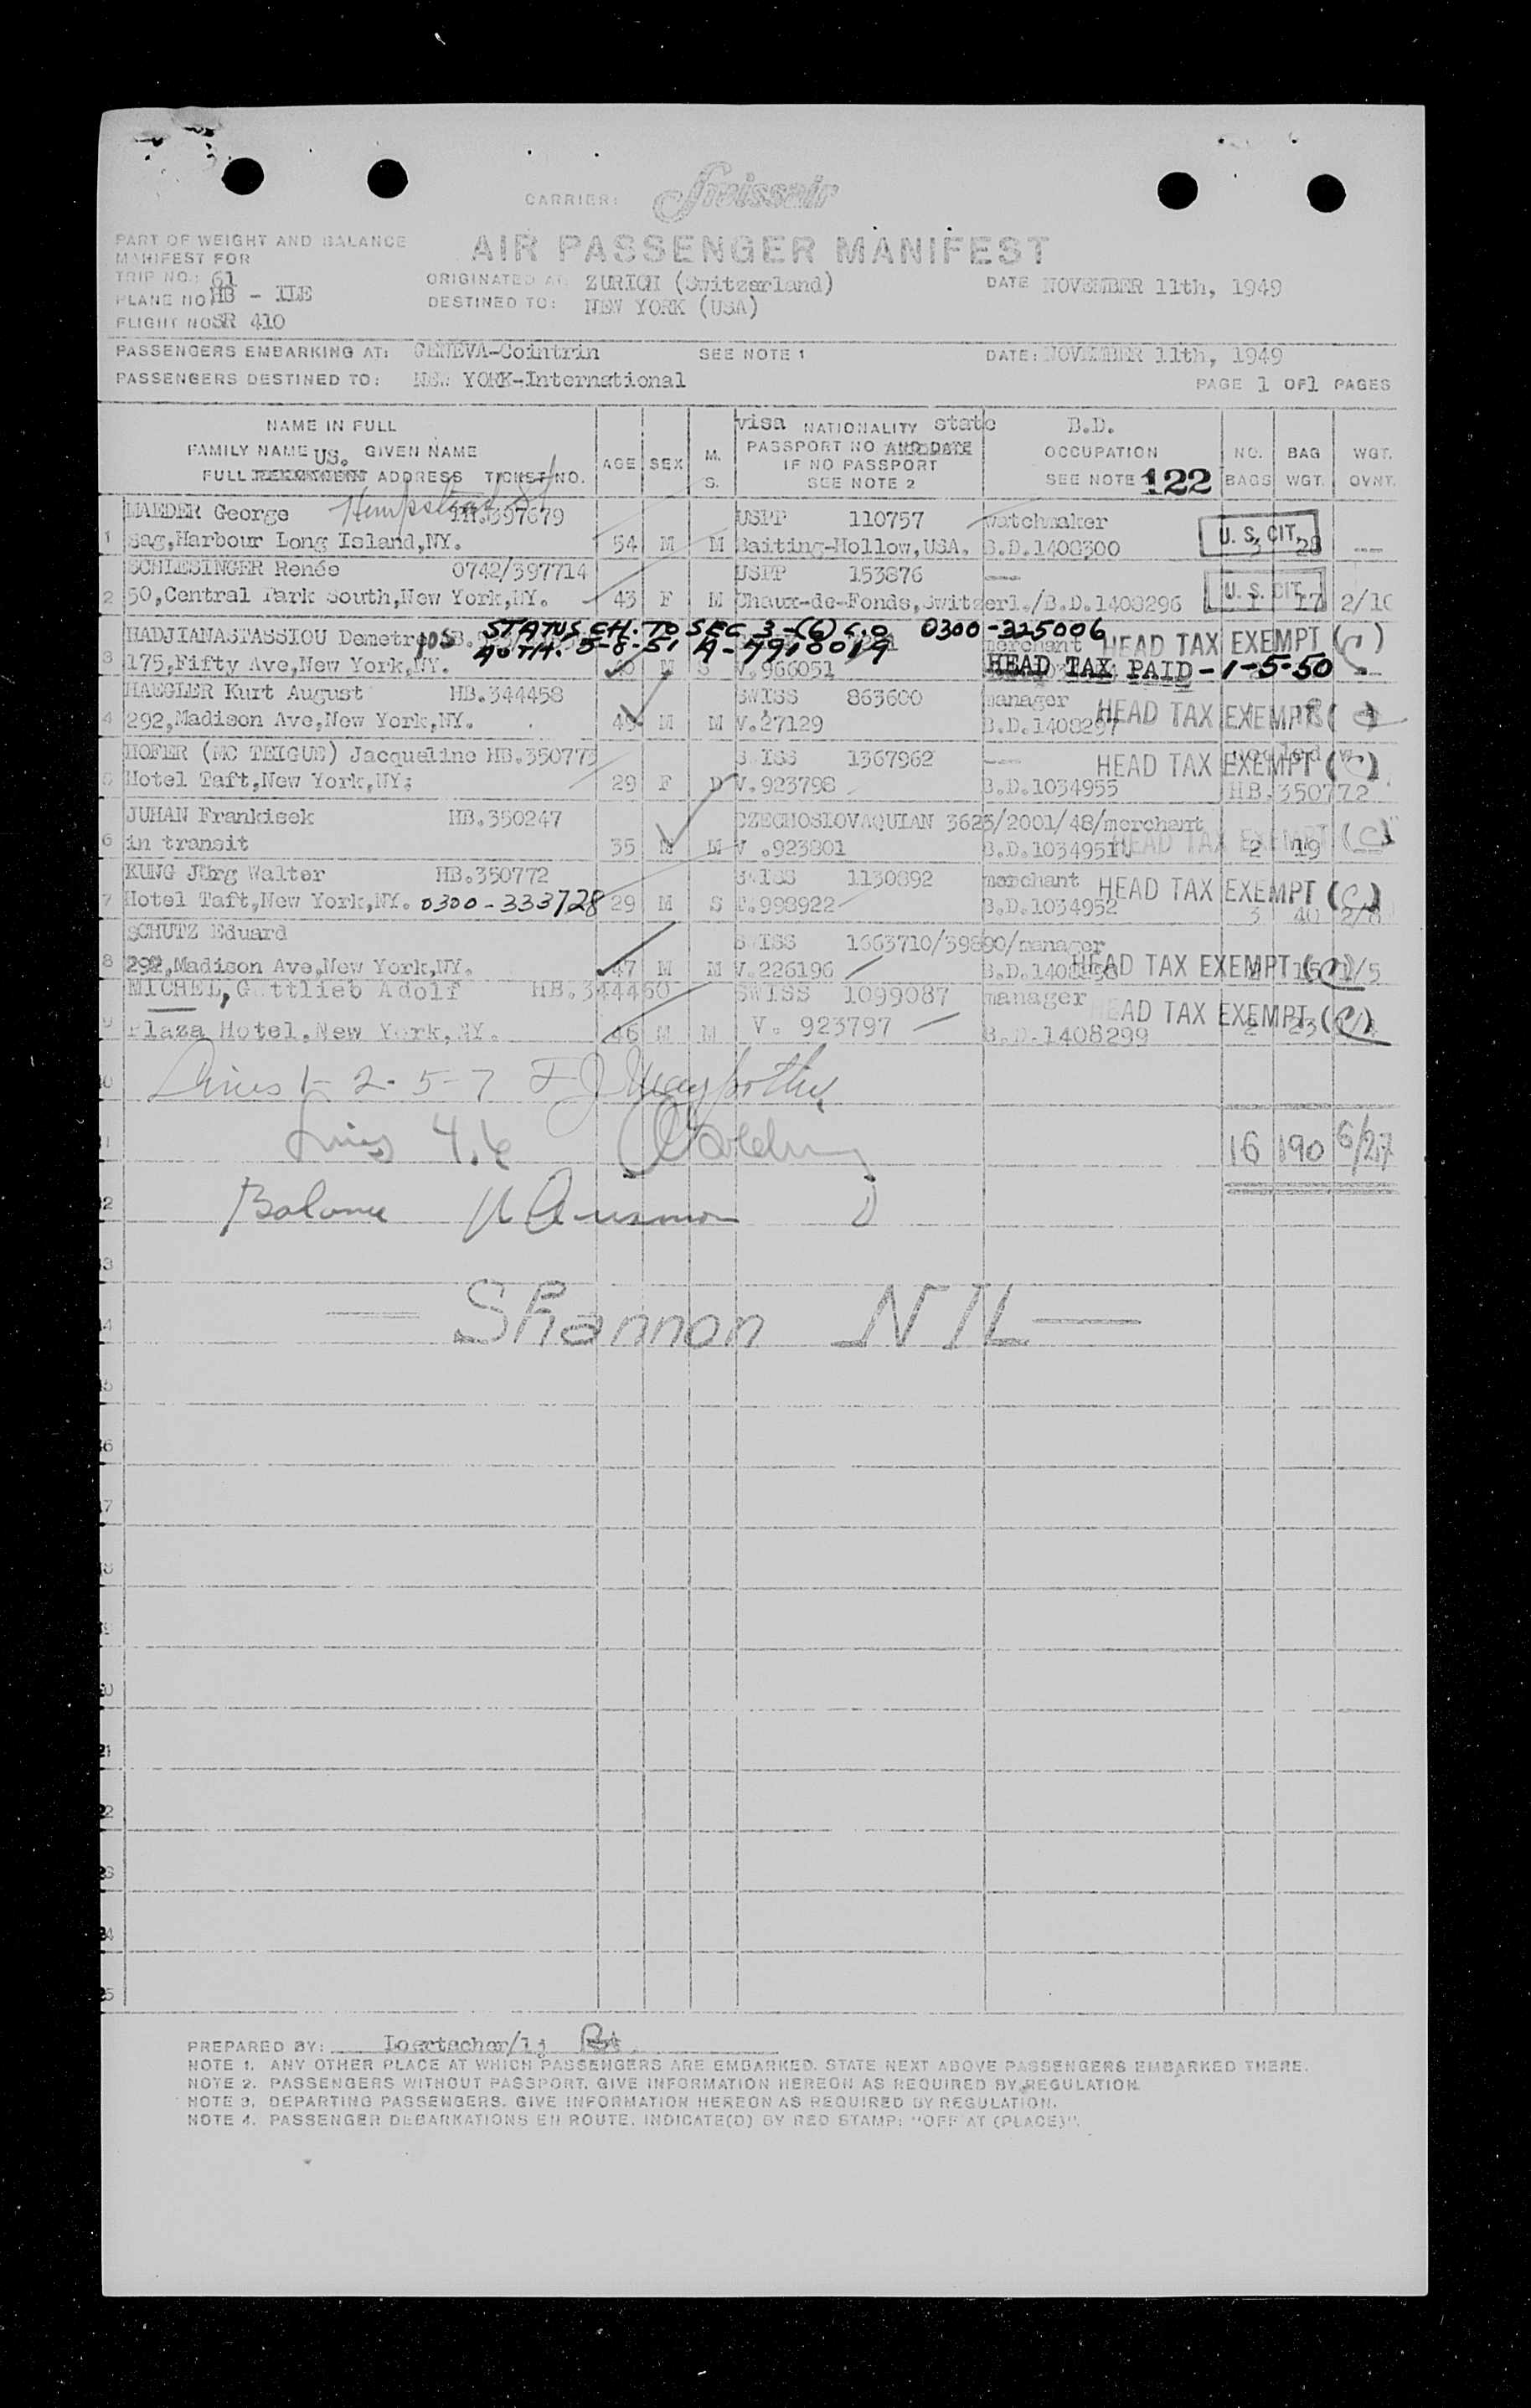 CARRIER: Swissair
PART OF WEIGHT AND BALANCE
MANIFEST FOR
AIR PASSENGER MANIFEST
TRIP NO.: 61
PLANE NO HB - ILE
FLIGHT NO SR 410
ORIGINATED AT ZURICH (Switzerland)
DESTINED TO: NEW YORK (USA)
DATE NOVEMBER 11th, 1949
PASSENGERS EMBARKING AT: GENEVA-Cointrin SEE NOTE 1 DATE: NOVEMBER 11th, 1949
PASSENGERS DESTINED TO: NEW YORK-International PAGE 1 OF 1 PAGES
NAME IN FULL
FAMILY NAME US. GIVEN NAME
FULL ADDRESS TICKET NO.
AGE SEX M. S.
visa NATIONALITY state
PASSPORT NO AND DATE
IF NO PASSPORT
SEE NOTE 2
B.D.
OCCUPATION
SEE NOTE 122
NO. BAGS
BAG WGT.
WGT. OVNT.
1 MAEDER George Hempstead 397679 USPP 110757 watchmaker U. S. CIT.
Sag,Harbour Long Island,NY. 54 M M Baiting-Hollow,USA. B.D.1408300 3 28 --
2 SCHLESINGER Renée 0742/397714 USPP 153876 -- U. S. CIT.
50,Central Park South,New York,NY. 43 F M Chaux-de-Fonds,Switzerl./B.D.1408296 1 17 2/10
STATUS CH. TO SEC 3-(6) 0300-325006
3 HADJIANASTASSIOU Demetrios merchant HEAD TAX EXEMPT (C)
AUTH. 5-8-51 A-7918019
175,Fifty Ave,New York,NY. M S V.966051 HEAD TAX PAID - 1-5-50
4 HAEGLER Kurt August HB.344458 SWISS 863600 manager
292,Madison Ave,New York,NY. 49 M M V.27129 B.D.1408297 HEAD TAX EXEMPT
5 HOFER (MC TEIGUE) Jacqueline HB.350773 SWISS 1367962 -- pooled w.
Hotel Taft,New York,NY; 29 F D V.923798 B.D.1034955 HEAD TAX EXEMPT (C) HB.350772
6 JUHAN Frankisek HB.350247 CZECHOSLOVAQUIAN 3623/2001/48/merchant
in transit 35 M M V .923801 B.D.1034951. HEAD TAX EXEMPT (C) 2 19
7 KUNG Jürg Walter HB.350772 SWISS 1130892 merchant HEAD TAX EXEMPT (C)
Hotel Taft,New York,NY. 0300-333728 29 M S V.998922 B.D.1034952 3 40 2/8
8 SCHUTZ Eduard SWISS 1663710/39890/manager
292,Madison Ave,New York,NY. 47 M M V.226196 HEAD TAX EXEMPT (C) 1/5
9 MICHEL, Gottlieb Adolf HB.344460 SWISS 1099087 manager HEAD TAX EXEMPT (C)
Plaza Hotel,New York,NY. 46 M M V. 923797 B.D.1408299 2 23
Lines 1-2-5-7
Lines 4.6
16 190 6/27
Balance
Shannon NIL
PREPARED BY: Loertscher/lj
NOTE 1. ANY OTHER PLACE AT WHICH PASSENGERS ARE EMBARKED. STATE NEXT ABOVE PASSENGERS EMBARKED THERE.
NOTE 2. PASSENGERS WITHOUT PASSPORT. GIVE INFORMATION HEREON AS REQUIRED BY REGULATION.
NOTE 3. DEPARTING PASSENGERS. GIVE INFORMATION HEREON AS REQUIRED BY REGULATION.
NOTE 4. PASSENGER DEBARKATIONS EN ROUTE. INDICATE(D) BY RED STAMP: "OFF AT (PLACE)".